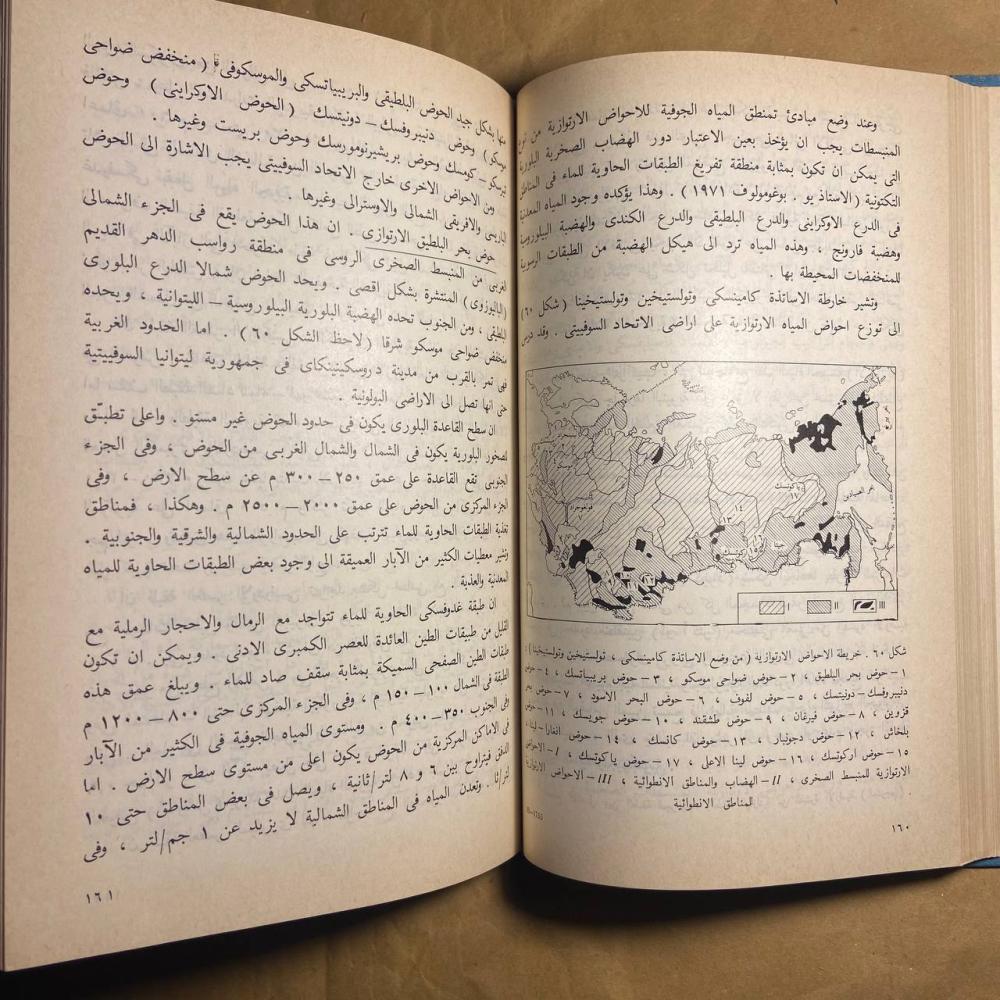 وعند وضع مبادئ تمنطق المياه الجوفية للاحواض الارتوازية من نوع
المنبسطات يجب ان يؤخذ بعين الاعتبار دور الهضاب الصخرية البلورية
التى يمكن ان تكون بمثابة منطقة تفريغ الطبقات الحاوية للماء فى المناطق
التكتونية (الاستاذ يو . بوغومولوف ١٩٧١) . وهذا يؤكده وجود المياه المعدنية
فى الدرع الاوكراينى والدرع البلطيقى والدرع الكندى والهضبة البيلوروسية
وهضبة فارونج ، وهذه المياه ترد الى هيكل الهضبة من الطبقات الرسوبية
للمنخفضات المحيطة بها .
وتشير خارطة الاساتذة كامينسكى وتولستيخين وتولستيخينا (شكل ٦٠)
الى توزع احواض المياه الارتوازية على اراضى الاتحاد السوفييتى . وقد درس
بحر بيرنج
ياكوتسك
١٧
١٤
١٣
I II III
شكل ٦٠ . خريطة الاحواض الارتوازية (من وضع الاساتذة كامينسكى ، تولستيخين وتولستيخينا) :
١ – حوض بحر البلطيق ، ٢ – حوض ضواحى موسكو ، ٣ – حوض بريبياتسك ، ٤ – حوض
دنيبروفسك – دونيتسك ، ٥ – حوض لفوف ، ٦ – حوض البحر الاسود ، ٧ – حوض بحر
قزوين ، ٨ – حوض فيرغان ، ٩ – حوض طشقند ، ١٠ – حوض جويسك ، ١١ – حوض
بلخاش ، ١٢ – حوض دجونبار ، ١٣ – حوض كانسك ، ١٤ – حوض انغارا – لينا ،
١٥ – حوض اركوتسك ، ١٦ – حوض لينا الاعلى ، ١٧ – حوض ياكوتسك ، I – الاحواض
الارتوازية للمنبسط الصخرى ، II – الهضاب والمناطق الانطوائية ، III – الاحواض الارتوازية
للمناطق الانطوائية
١٦٠
منها بشكل جيد الحوض البلطيقى والبريبياتسكى والموسكوفى (منخفض ضواحى
موسكو) وحوض دنيبروفسك – دونيتسك (الحوض الاوكراينى) . وحوض
تيرسكو – كومسك وحوض بريشيرنومورسك وحوض بريست وغيرها .
ومن الاحواض الاخرى خارج الاتحاد السوفييتى يجب الاشارة الى الحوض
الباريسى والافريقى الشمالى والاوسترالى وغيرها .
حوض بحر البلطيق الارتوازى . ان هذا الحوض يقع فى الجزء الشمالى
الغربى من المنبسط الصخرى الروسى فى منطقة رواسب الدهر القديم
(الباليوزوى) المنتشرة بشكل اقصى . ويحد الحوض شمالا الدرع البلورى
البلطيقى ، ومن الجنوب تحده الهضبة البلورية البيلوروسية – الليتوانية ، ويحده
منخفض ضواحى موسكو شرقا (لاحظ الشكل ٦٠) . اما الحدود الغربية
فهى تمر بالقرب من مدينة دروسكينينكاى فى جمهورية ليتوانيا السوفييتية
حتى انها تصل الى الاراضى البولونية .
ان سطح القاعدة البلورى يكون فى حدود الحوض غير مستو . واعلى تطبّق
للصخور البلورية يكون فى الشمال والشمال الغربى من الحوض ، وفى الجزء
الجنوبى تقع القاعدة على عمق ٢٥٠ – ٣٠٠ م عن سطح الارض ، وفى
الجزء المركزى من الحوض على عمق ٢٠٠٠ – ٢٥٠٠ م . وهكذا ، فمناطق
تغذية الطبقات الحاوية للماء تترتب على الحدود الشمالية والشرقية والجنوبية .
وتشير معطيات الكثير من الآبار العميقة الى وجود بعض الطبقات الحاوية للمياه
المعدنية والعذبة .
ان طبقة غدوفسكى الحاوية للماء تتواجد مع الرمال والاحجار الرملية مع
القليل من طبيقات الطين العائدة للعصر الكمبرى الادنى . ويمكن ان تكون
طبقات الطين الصفحى السميكة بمثابة سقف صاد للماء . ويبلغ عمق هذه
الطبقة فى الشمال ١٠٠ – ١٥٠ م ، وفى الجزء المركزى حتى ٨٠٠ – ١٢٠٠ م
وفى الجنوب ٣٥٠ – ٤٠٠ م . ومستوى المياه الجوفية فى الكثير من الآبار
فى الاماكن المركزية من الحوض يكون اعلى من مستوى سطح الارض . اما
الدفق فيتراوح بين ٦ و ٨ لتر/ثانية ، ويصل فى بعض المناطق حتى ١٠
لتر/ثا . وتعدن المياه فى المناطق الشمالية لا يزيد عن ١ جم/لتر ، وفى
١٦١